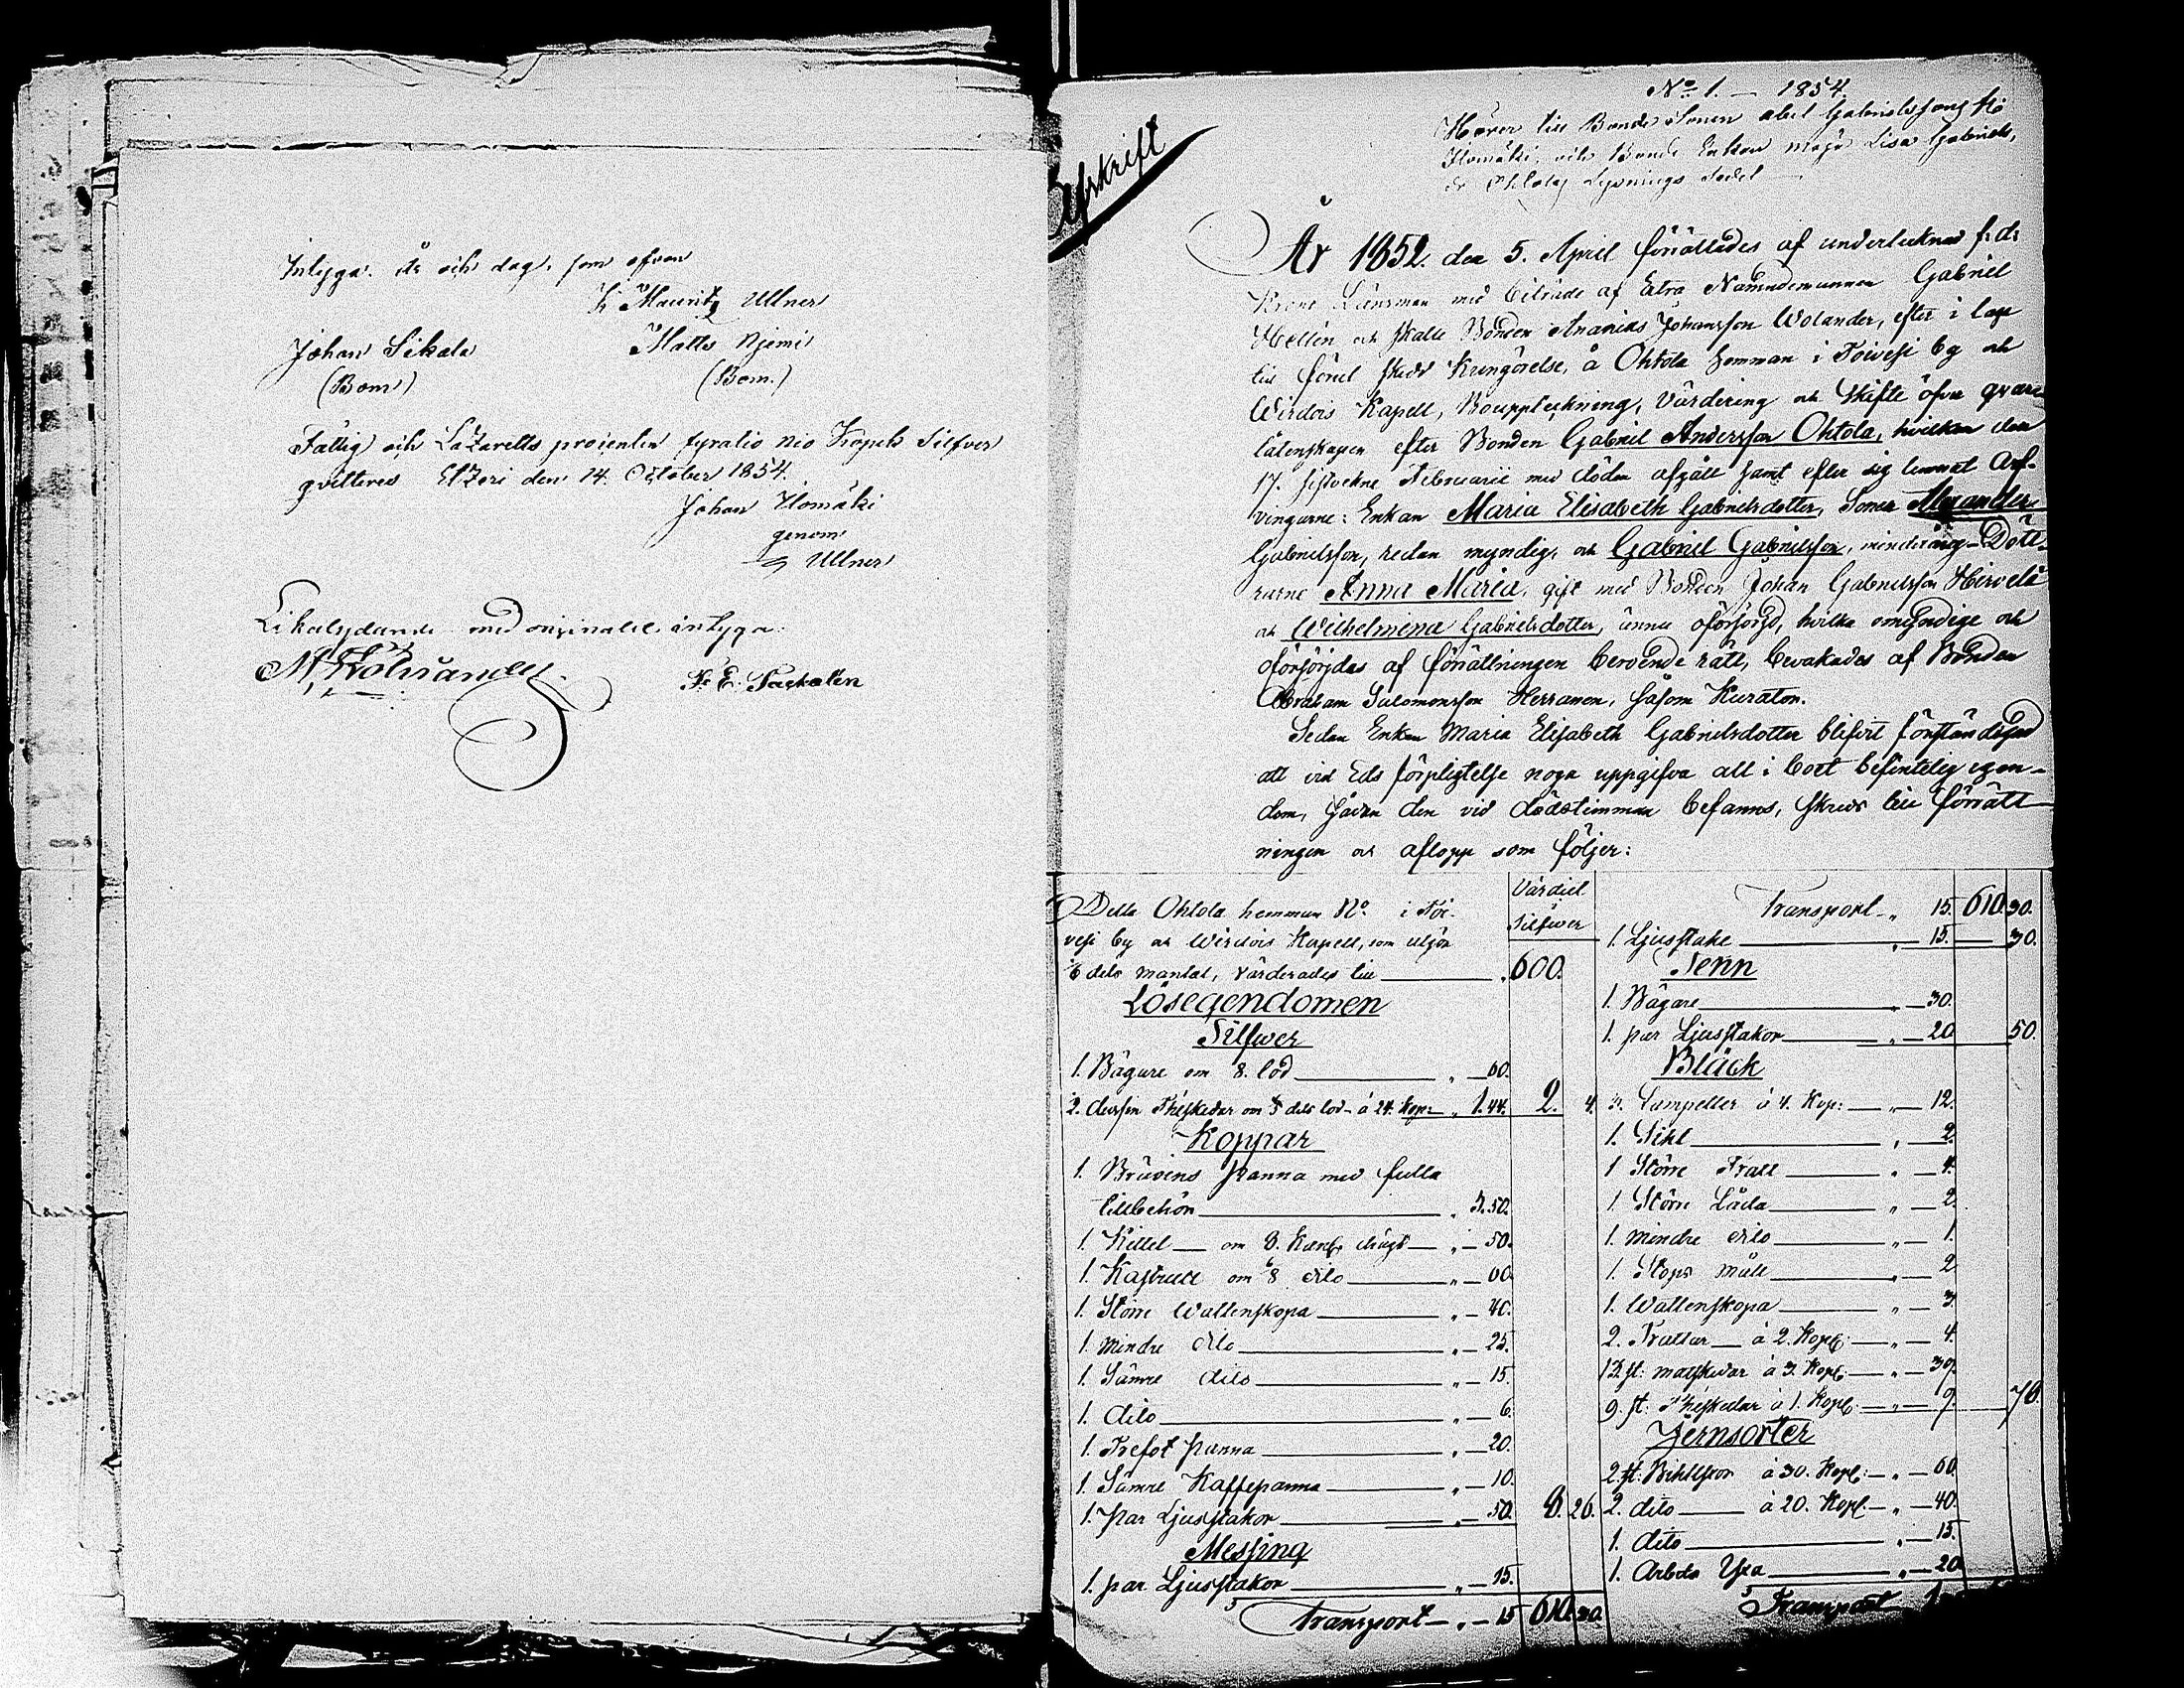 Intyga. År och dag, som ofvan
K Mauritz Ullner
Johan Sikala Matts Njemi
(Bom.) (Bom.)
Fattig och Lazaretts procenten fyratio nio Kopek Silfver
qvitteras Etzeri den 14. October 1854.
Johan Ilomäki
genom
Ullner
Likalydande med originalet intyga:
Afskrift
No 1. – 1854.
Hörer till Bonde Sonen Abel Gabrielsson
Ilomäki och Bonde Enkan Maja Lisa Gabriels,
dr Ohtola Lysnings Sedel
År 1852. den 5. April förrättades af undertecknad f. d.
Krono Länsman med biträde af Extra Nämndemannen Gabriel
Hellén och Skatte Bonden Ananias Johansson Wolander, efter i laga
tid förut skedd Kungörelse, å Ohtola hemman i Toivesi by och
Wirdois Kapell, Bouppteckning, Värdering och Skifte öfver qvar-
låtenskapen efter Bonden Gabriel Andersson Ohtola, hvilken den
17. sistvekne Februarii med döden afgått samt efter sig lemnat Arf-
vingarne: Enkan Maria Elisabeth Gabrielsdotter, Soner Alexander
Gabrielsson, redan myndig, och Gabriel Gabrielsson, minderårig – Dött-
rarne Anna Maria, gift med Bonden Johan Gabrielsson Hirvelä
och Wilhelmina Gabrielsdotter, ännu oförsörjd, hvilka omyndige och
oförsörjdas af förrättningen beroende rätt, bevakades af Bonden
Abraham Salomonsson Herranen, såsom Kurator.
Sedan Enkan Maria Elisabeth Gabrielsdotter blifvit förständigad
att vid Eds förpligtelse noga uppgifva all i boet befintelig egen-
dom, sådan den vid dödstimman befanns, skreds till förrätt-
ningen och aflopp som följer:
Värdiet
Silfwer
Detta Ohtola hemman No. i Toi-
vesi by och Wirdois Kapell, som utgör
dels mantal, värderades till 600.
Lösegendomen
Silfwer
1. Bägare om 8. lod „ – 60.
½ dussin Théskedar om dels lod – à 24. Kop: „ 1.44. 2. 4.
Koppar
1. Brävins panna med fulla
tillbehör „ 3.50.
1. Kittel om 8. Kan:s drägt „ – 50.
1. Kastrull om dito „ – 60.
1. Större Wattenskopa „ – 40.
1. Mindre dito „ – 25.
1. Sämre dito „ – 15.
1. dito „ – 6.
1. Trefot panna „ – 20.
1. Sämre Kaffepanna „ – 10.
1. par Ljusstakor „ – 50. 8. 26.
Messing
1. par Ljusstakor „ – 15.
Transport „ – 15 610. 30.
Transport „ 15. 610. 30.
1. Ljusstake „ – 15. 30.
Tenn
1. Bägare „ – 30.
1. par Ljusstakor „ – 20 50.
Bläck
3. Lampetter à 4. Kop: „ – 12.
1. Sihl „ – 2.
1 Större Tratt „ – 4.
1 Större Låda „ – 2.
1. Mindre dito „ – 1.
1. Stops mått „ – 2
1. Wattenskopa „ – 3.
2. Trattar à 2. Kop: „ – 4.
13. st: matskedar à 3. Kop: „ – 39.
9. st: Théskedar à 1. Kop: „ – 9. 78.
Jernsorter
2. st: Bihlspor à 30. Kop: „ – 60.
2. dito à 20. Kop: „ – 40.
1. dito „ – 15.
1. Arbets Yxa „ – 20
Transport